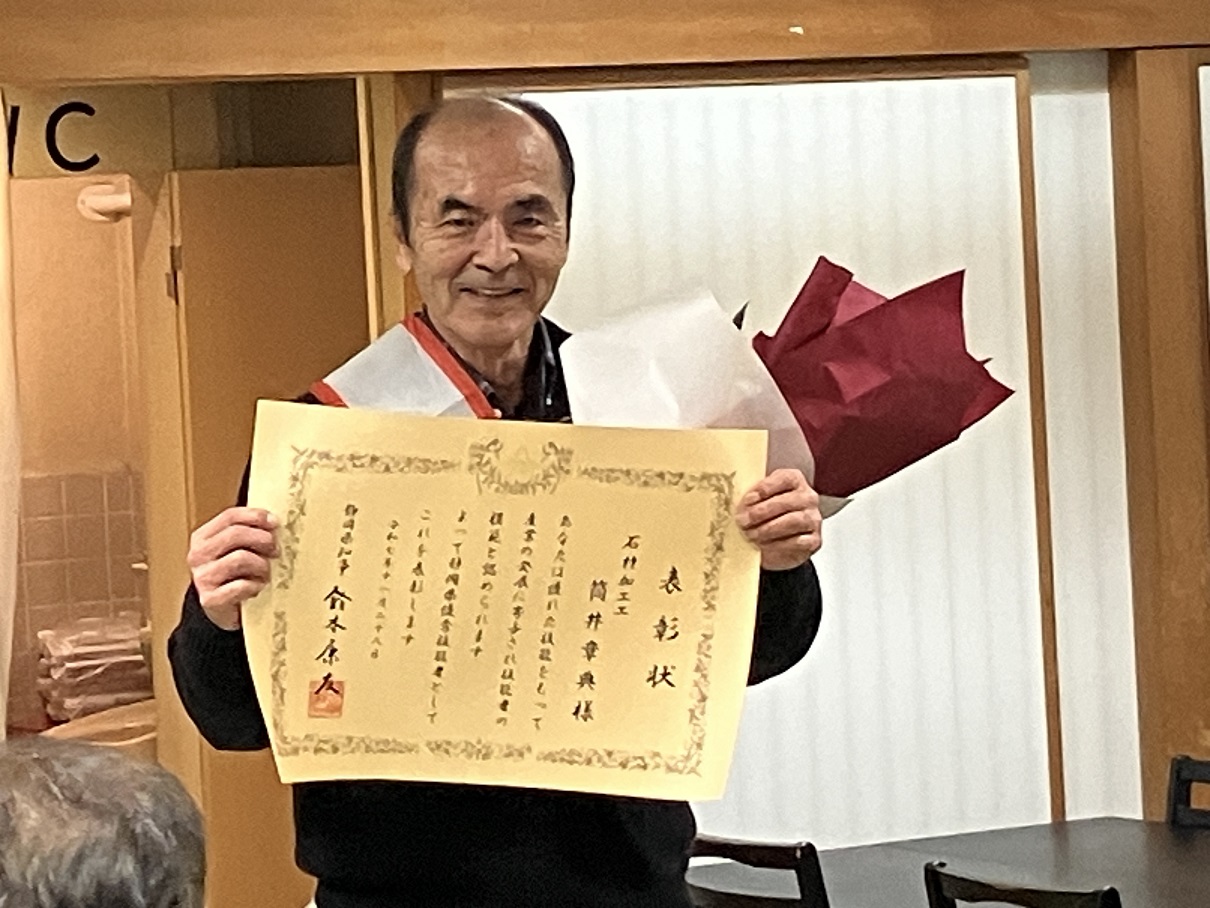 WC
表彰状
石材加工工
筒井章典様
あなたは優れた技能をもって
産業の発展に寄与され技能者の
模範と認められます
よって静岡県優秀技能者として
これを表彰します
令和七年十一月二十八日
静岡県知事 鈴木康友